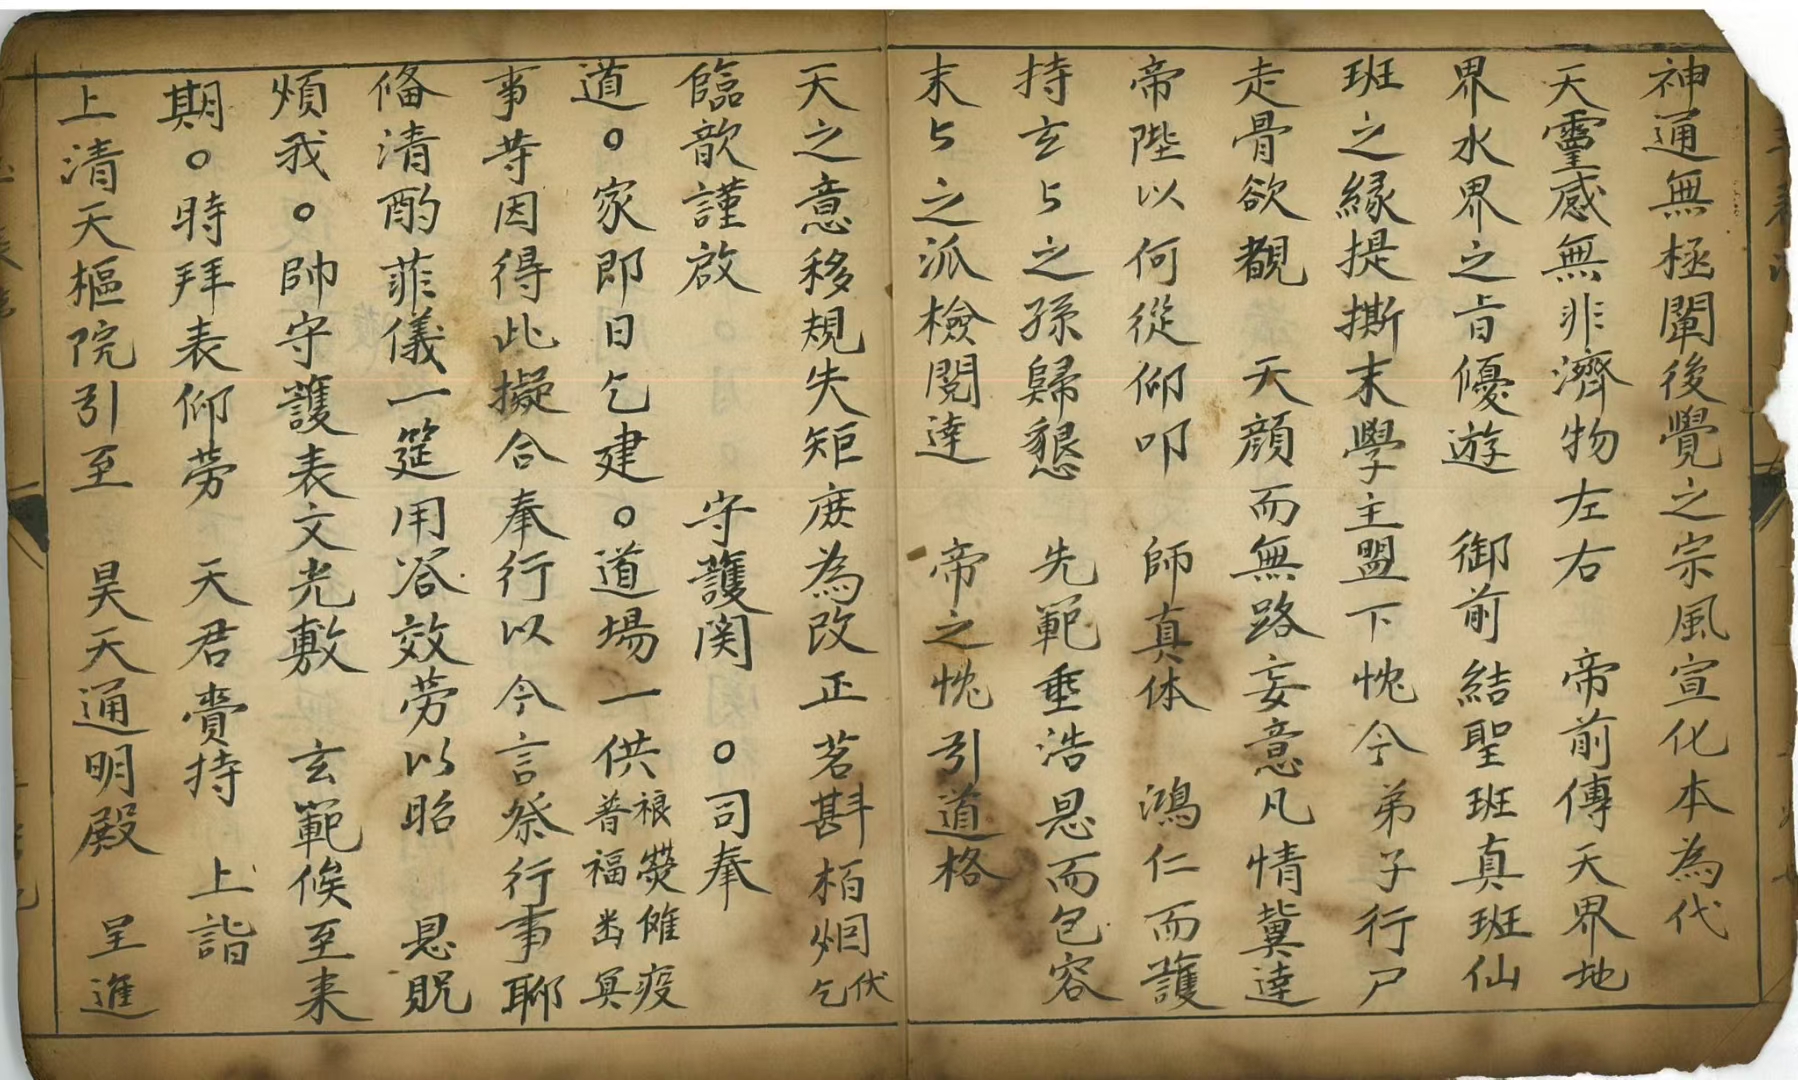 神通無極闡後覺之宗風宣化本為代
天靈感無非濟物左右　帝前傳天界地
界水界之旨優遊　御前結聖班真班仙
班之緣提撕末學主盟下忱今弟子行尸
走骨欲覩　天顏而無路妄意凡情冀達
帝陛以何從仰叩　師真体　鴻仁而護
持玄〻之孫歸懇　先範垂浩恩而包容
末〻之派檢閱達　帝之忱引道格
天之意移規失矩庶為改正茗斟栢烟伏乞
臨歆謹啟　守護関　○司奉
道○家即日乞建○道場一供禳熒傩疫普福幽冥
事苛因得此擬合奉行以今言祭行事聊
俻清酌菲儀一筵用浴效勞以昭　恩貺
煩我○帥守護表文光敷　玄範候至来
期○時拜表仰劳　天君賫持　上詣
上清天樞院引至　昊天通明殿　呈進